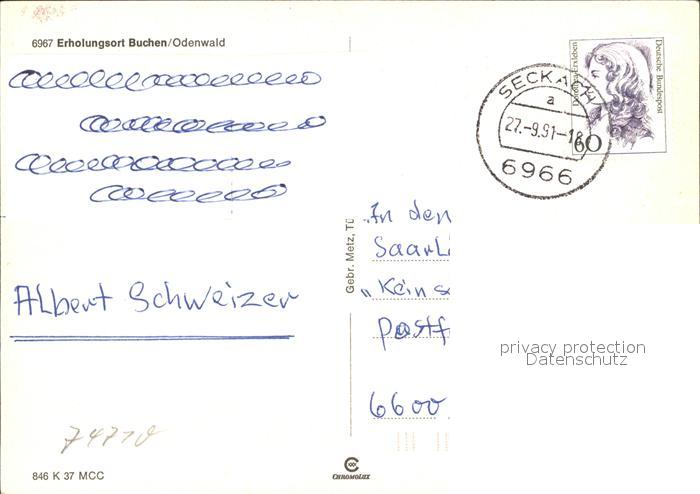 6967 Erholungsort Buchen/Odenwald
Deutsche Bundespost
60
SECKACH
a
27.-9.91-18
6966
Albert Schweizer
Gebr. Metz, Tü
„In den
SaarL
„Kein
postf
6600
privacy protection
Datenschutz
74710
846 K 37 MCC
CHROMOLUX